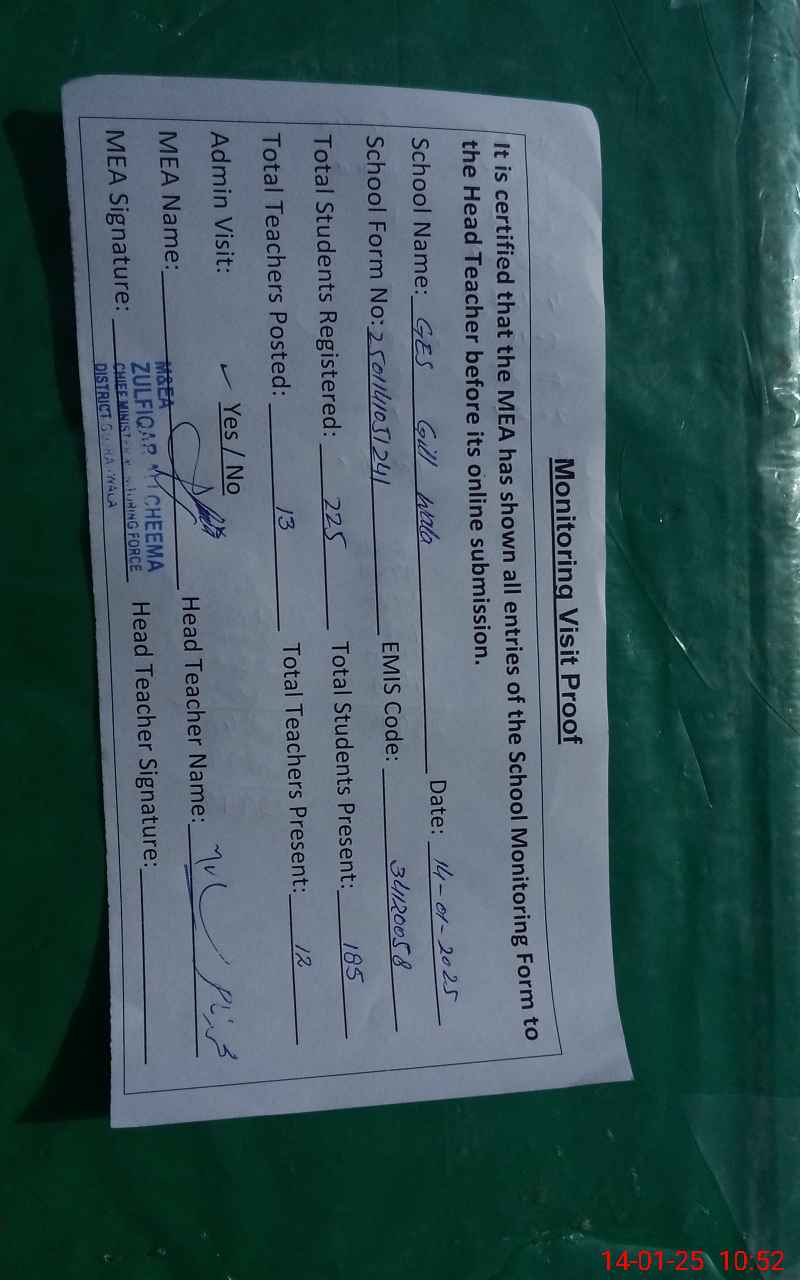 Monitoring Visit Proof
It is certified that the MEA has shown all entries of the School Monitoring Form to
the Head Teacher before its online submission.
School Name: GES Gill Wala Date: 14-01-2025
School Form No: 2501141051241 EMIS Code: 34120058
Total Students Registered: 225 Total Students Present: 185
Total Teachers Posted: 13 Total Teachers Present: 12
Admin Visit: ✓ Yes / No
MEA Name: Head Teacher Name:
MEA Signature: Head Teacher Signature:
M&EA
ZULFIQAR CHEEMA
CHIEF MINISTER MONITORING FORCE
DISTRICT
14-01-25 10:52